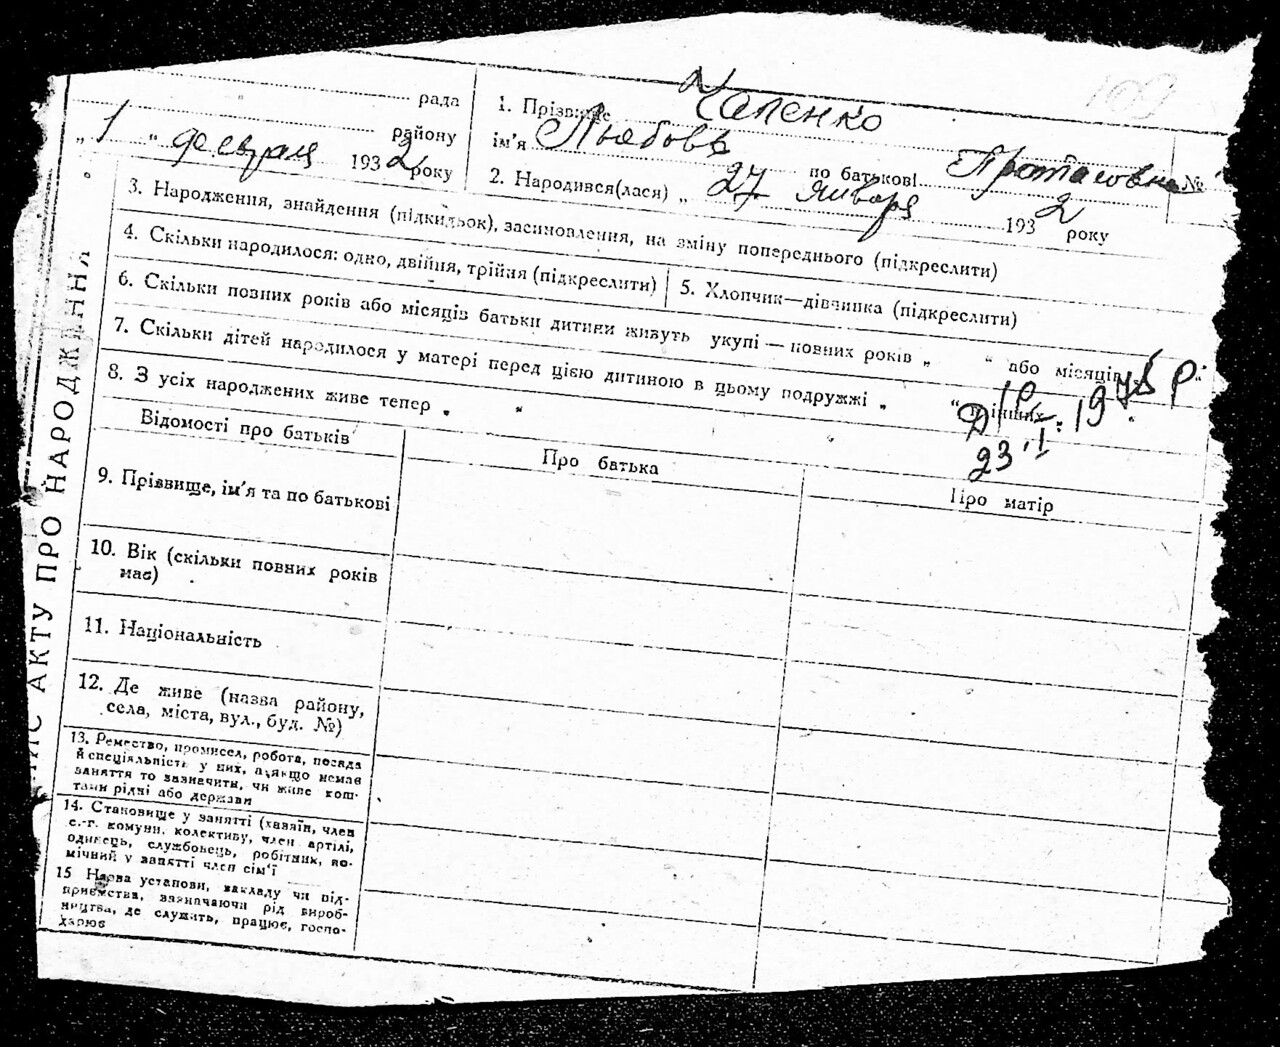 102
рада
району
„ 1 “ февраля 1932 року
1. Прізвище Чапенко
ім'я Любовь по батькові Протасовна №
2. Народився(лася) „ 27 января 1932 року
3. Народження, знайдення (підкидьок), засиновлення, на зміну попереднього (підкреслити)
4. Скільки народилося: одно, двійня, трійня (підкреслити)
5. Хлопчик—дівчинка (підкреслити)
6. Скільки повних років або місяців батьки дитини живуть укупі — повних років „ “ або місяців „ “
7. Скільки дітей народилося у матері перед цією дитиною в цьому подружжі „ “
8. З усіх народжених живе тепер „ “
23.I.1975 р
Відомості про батьків
Про батька
Про матір
9. Прізвище, ім'я та по батькові
10. Вік (скільки повних років
має)
11. Національність
12. Де живе (назва району,
села, міста, вул., буд. №)
13. Ремество, промисел, робота, посада
й спеціяльність у них, а якщо немає
заняття то зазначити, чи живе кош-
тами рідні або держави
14. Становище у занятті (хазяїн, член
с.-г. комуни, колективу, член артілі,
одинець, службовець, робітник, по-
мічний у занятті член сім'ї
15 Назва установи, закладу чи під-
приємства, зазначаючи рід вироб-
ництва, де служить, працює, госпо-
дарює
АКТУ ПРО НАРОДЖЕННЯ